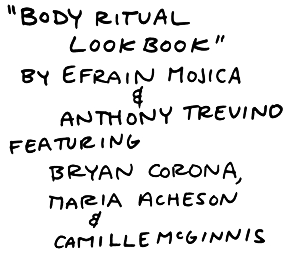 "BODY RITUAL
LOOKBOOK"
BY EFRAIN MOJICA
&
ANTHONY TREVINO
FEATURING
BRYAN CORONA,
MARIA ACHESON
&
CAMILLE McGINNIS